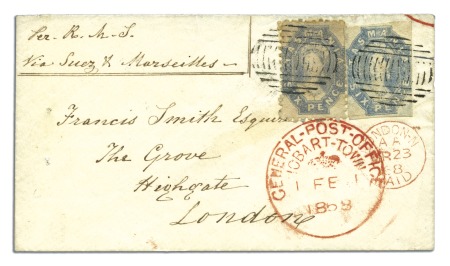 Per R. M. S.
Via Suez & Marseilles
SIX PENCE
Francis Smith Esquire
The Grove
Highgate
London
GENERAL-POST-OFFICE
HOBART-TOWN
1 FE
LONDON
23
PAID